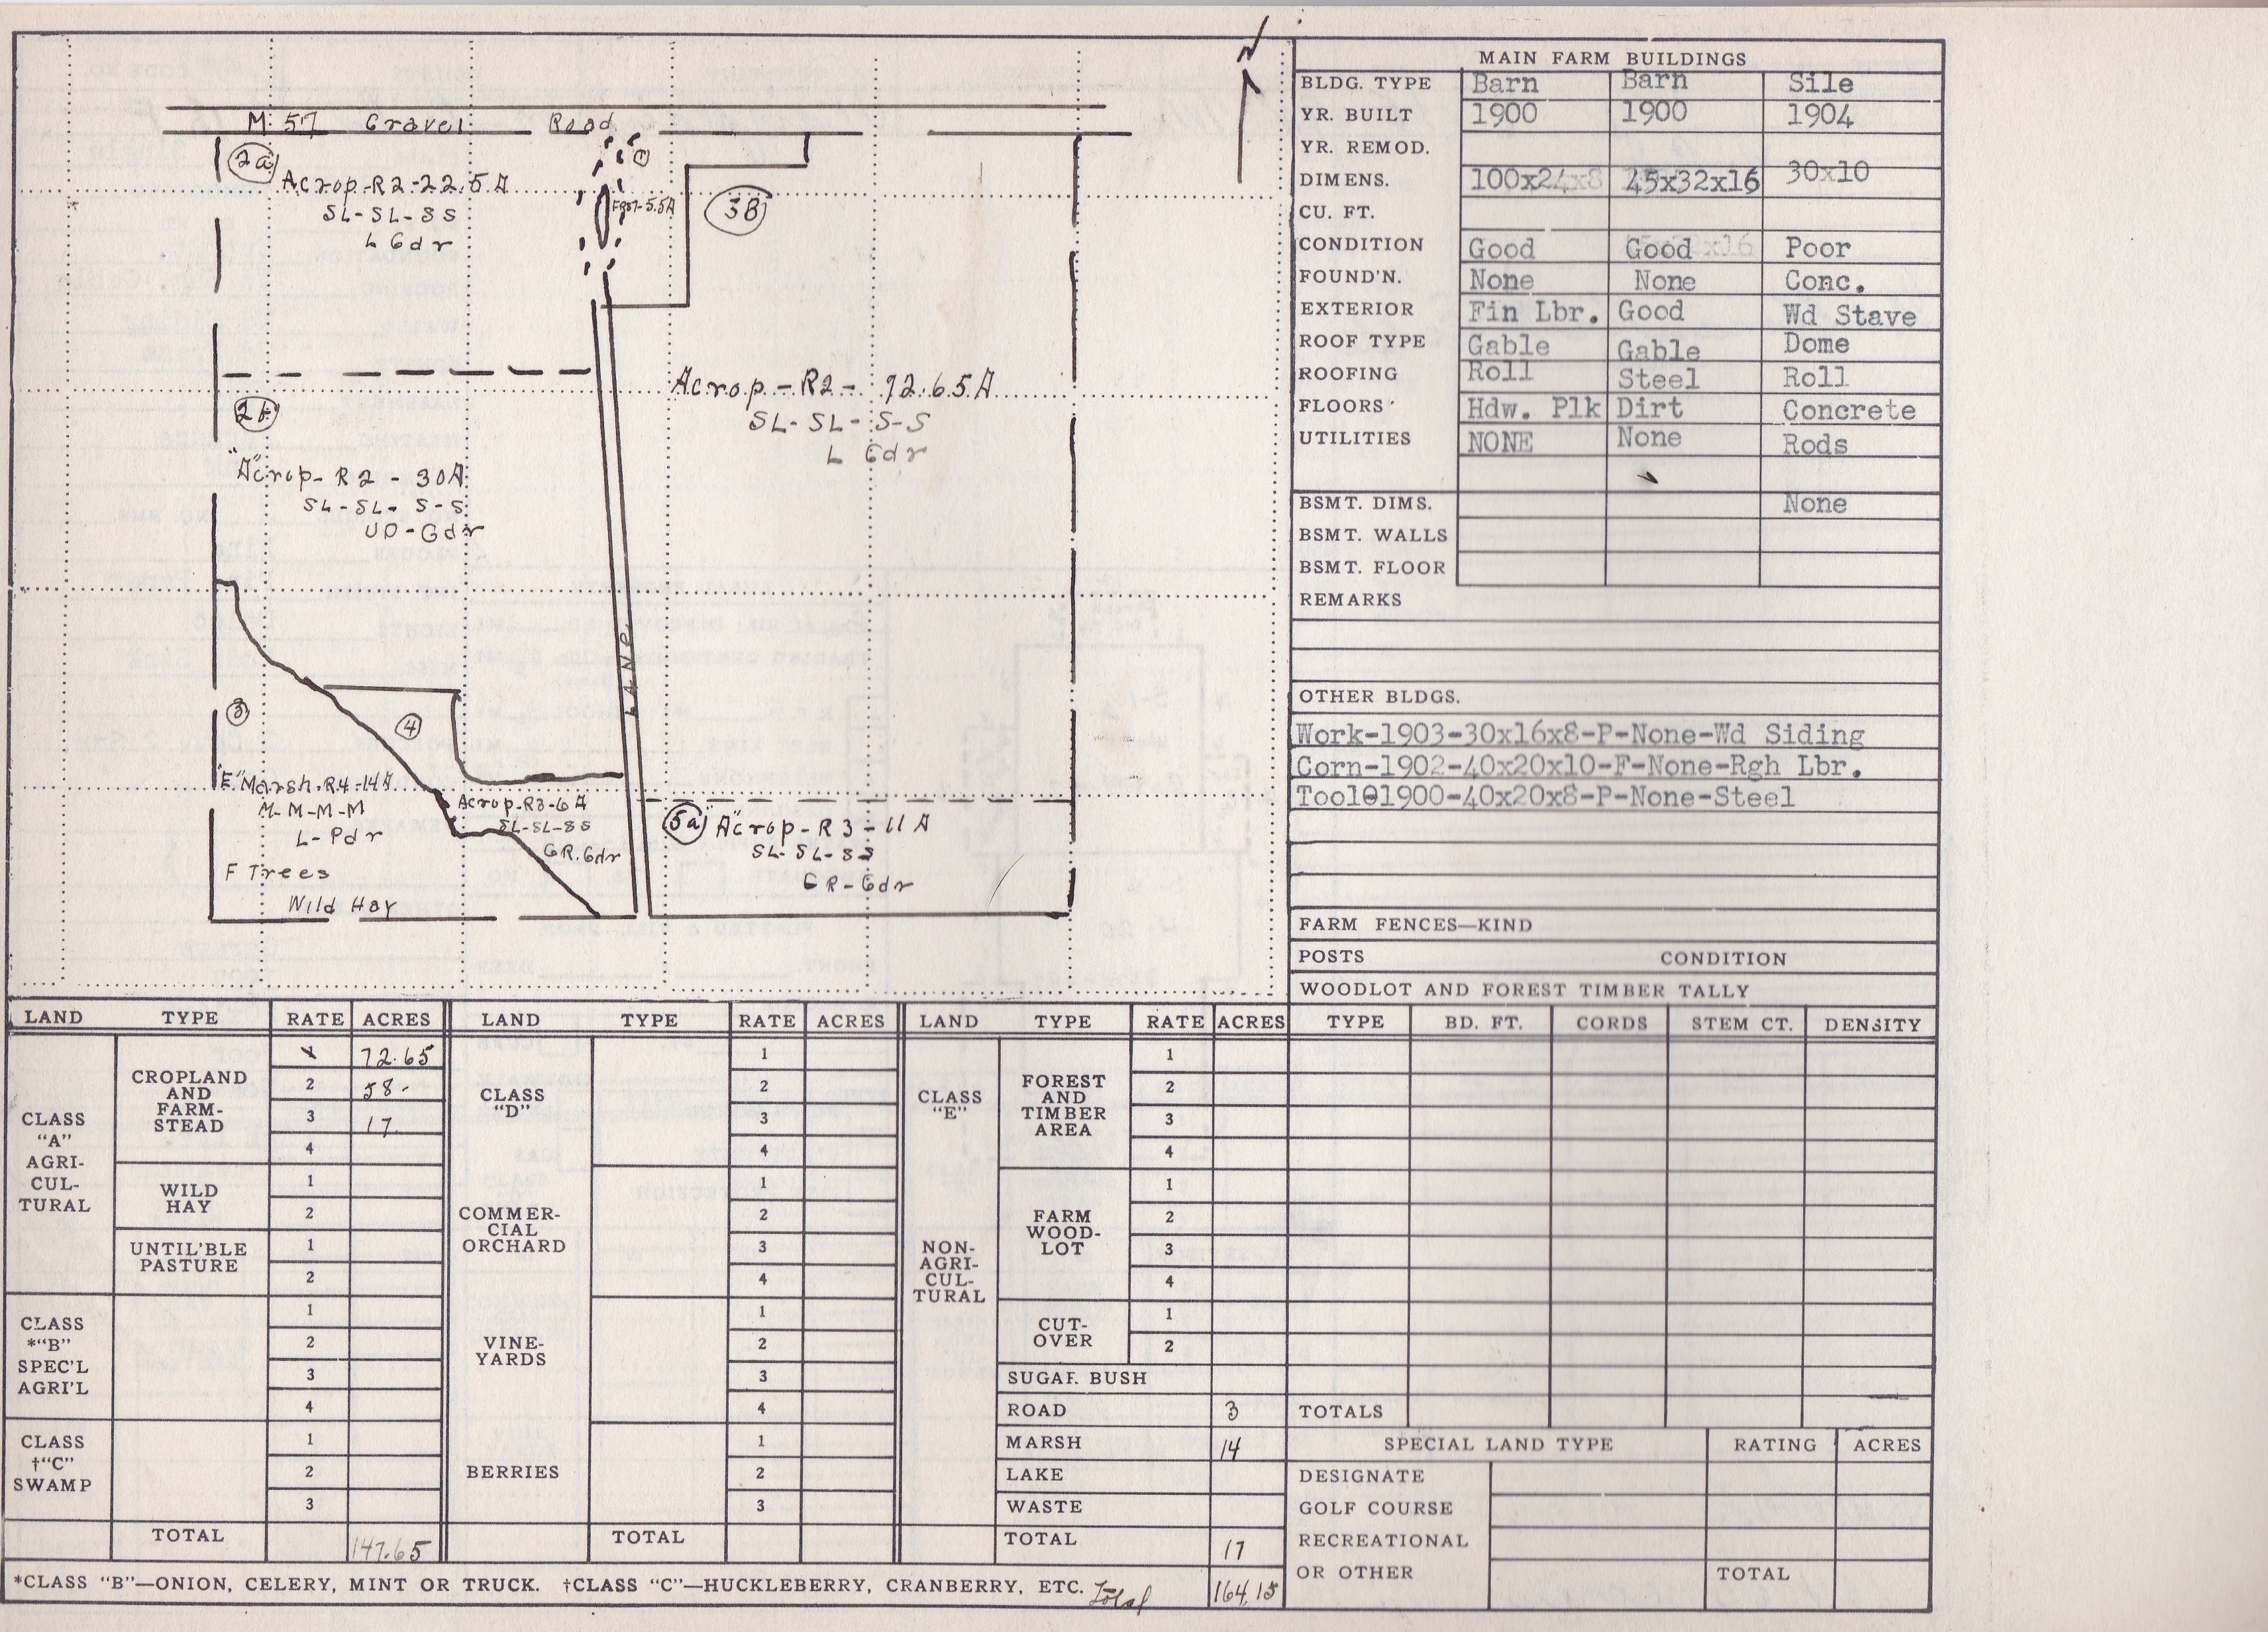 N
M 57 Gravel Road
2a
Acrop-R2-22.5A
SL-SL-SS
L Gdr
1
5.5A
3B
Acrop-R2-72.65A
SL-SL-S-S
L Gdr
"A"crop-R2-30A
SL-SL-S-S
UD-Gdr
LANE
3
"E"Marsh-R4-14A
M-M-M-M
L-Pdr
F Trees
Wild Hay
4
Acrop-R3-6A
SL-SL-SS
GR.Gdr
5a "A"crop-R3-11A
SL-SL-SS
GR-Gdr
MAIN FARM BUILDINGS
BLDG. TYPE Barn Barn Sile
YR. BUILT 1900 1900 1904
YR. REMOD.
DIMENS. 100x24x8 45x32x16 30x10
CU. FT.
CONDITION Good Good Poor
FOUND'N. None None Conc.
EXTERIOR Fin Lbr. Good Wd Stave
ROOF TYPE Gable Gable Dome
ROOFING Roll Steel Roll
FLOORS Hdw. Plk Dirt Concrete
UTILITIES NONE None Rods
BSMT. DIMS. None
BSMT. WALLS
BSMT. FLOOR
REMARKS
OTHER BLDGS.
Work-1903-30x16x8-P-None-Wd Siding
Corn-1902-40x20x10-F-None-Rgh Lbr.
Tool01900-40x20x8-P-None-Steel
FARM FENCES—KIND
POSTS CONDITION
WOODLOT AND FOREST TIMBER TALLY
TYPE BD. FT. CORDS STEM CT. DENSITY
TOTALS
SPECIAL LAND TYPE RATING ACRES
DESIGNATE
GOLF COURSE
RECREATIONAL
OR OTHER TOTAL
LAND TYPE RATE ACRES
CLASS
"A"
AGRI-
CUL-
TURAL
CROPLAND
AND
FARM-
STEAD
1 72.65
2 58-
3 17
4
WILD
HAY
1
2
UNTIL'BLE
PASTURE
1
2
CLASS
*"B"
SPEC'L
AGRI'L
1
2
3
4
CLASS
†"C"
SWAMP
1
2
3
TOTAL 147.65
LAND TYPE RATE ACRES
CLASS
"D"
1
2
3
4
COMMER-
CIAL
ORCHARD
1
2
3
4
VINE-
YARDS
1
2
3
4
BERRIES
1
2
3
TOTAL
LAND TYPE RATE ACRES
CLASS
"E"
NON-
AGRI-
CUL-
TURAL
FOREST
AND
TIMBER
AREA
1
2
3
4
FARM
WOOD-
LOT
1
2
3
4
CUT-
OVER
1
2
SUGAR BUSH
ROAD 3
MARSH 14
LAKE
WASTE
TOTAL 17
*CLASS "B"—ONION, CELERY, MINT OR TRUCK. †CLASS "C"—HUCKLEBERRY, CRANBERRY, ETC. Total 164.15